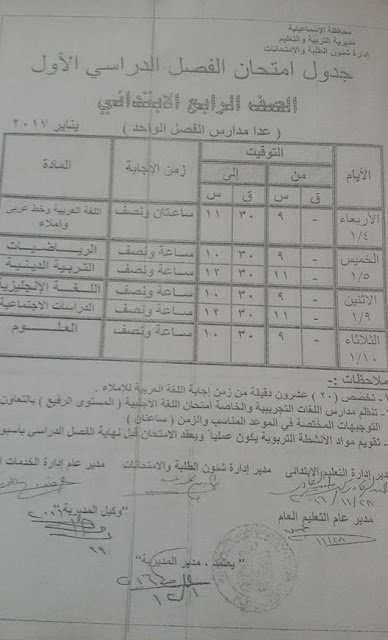 محافظة الإسماعيلية
مديرية التربية والتعليم
إدارة شئون الطلبة والامتحانات
جدول امتحان الفصل الدراسي الأول
الصف الرابع الابتدائي
( عدا مدارس الفصل الواحد ) يناير ٢٠١٧
الأيام التوقيت زمن الإجابة المادة
من إلى
ق س ق س
الأربعاء ١/٤ - ٩ ٣٠ ١١ ساعتان ونصف اللغة العربية وخط عربى وإملاء
الخميس ١/٥ - ٩ ٣٠ ١٠ ساعة ونصف الرياضيات
- ١١ ٣٠ ١٢ ساعة ونصف التربية الدينية
الاثنين ١/٩ - ٩ ٣٠ ١٠ ساعة ونصف اللغة الإنجليزية
- ١١ ٣٠ ١٢ ساعة ونصف الدراسات الاجتماعية
الثلاثاء ١/١٠ - ٩ ٣٠ ١٠ ساعة ونصف العلوم
ملاحظات :-
١- تخصص ( ٢٠ ) عشرون دقيقة من زمن إجابة اللغة العربية للإملاء .
- تنظم مدارس اللغات التجريبية والخاصة امتحان اللغة الأجنبية ( المستوى الرفيع ) بالتعاون
التوجيهات المختصة في الموعد المناسب والزمن ( ساعتان )
- تقويم مواد الأنشطة التربوية يكون عمليا" ويعقد الامتحان قبل نهاية الفصل الدراسي بأسبو
مدير إدارة التعليم الابتدائى مدير إدارة شئون الطلبة والامتحانات مدير عام إدارة الخدمات
مدير عام التعليم العام "وكيل المديرية"
" يعتمد ، مدير المديرية "